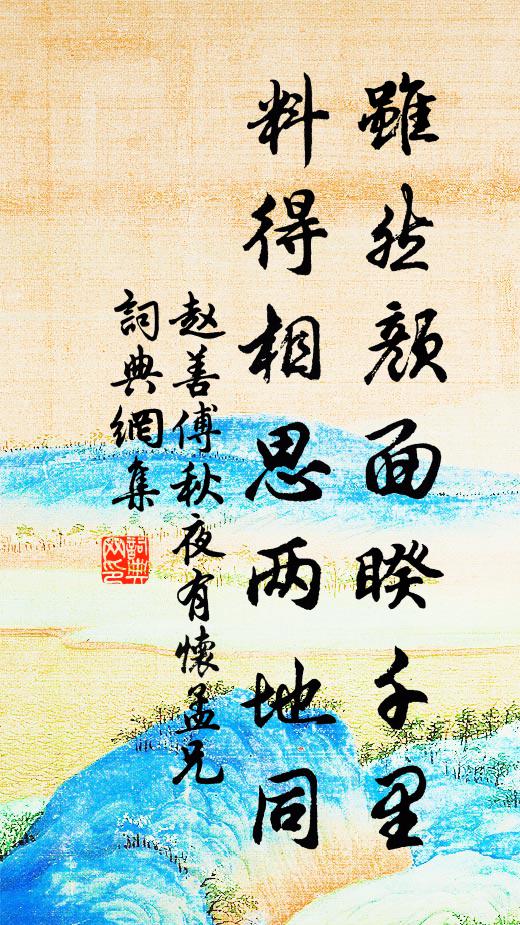 雖然顏面睽千里
料得相思两地同
赵善傅秋夜有懷孟兄
詞典網集